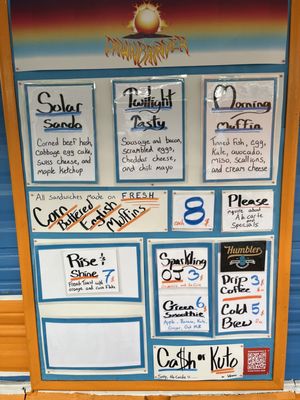 MAHARANDER
Solar
Sando
Corned beef hash,
Cabbage egg cake,
Swiss cheese, and
maple Ketchup
Twilight
Tasty
Sausage and bacon,
scrambled egg,
Cheddar cheese,
and chili mayo
Morning
Muffin
Tinned Fish, egg,
Kale, avocado,
miso, scallions,
and cream cheese
All Sandwiches Made on FRESH
Corn
Buttered
English
Muffins
8
Please
inquire about
A la carte
Specials
Rise
Shine 7
French Toast with
orange and corn flakes
Sparkling
OJ 3
Green 6
Smoothie
Apple, Banana, Kale,
Ginger, Oat Milk
Humbler
Drip 3
Coffee
Cold 5
Brew
Ca$h or Kuto